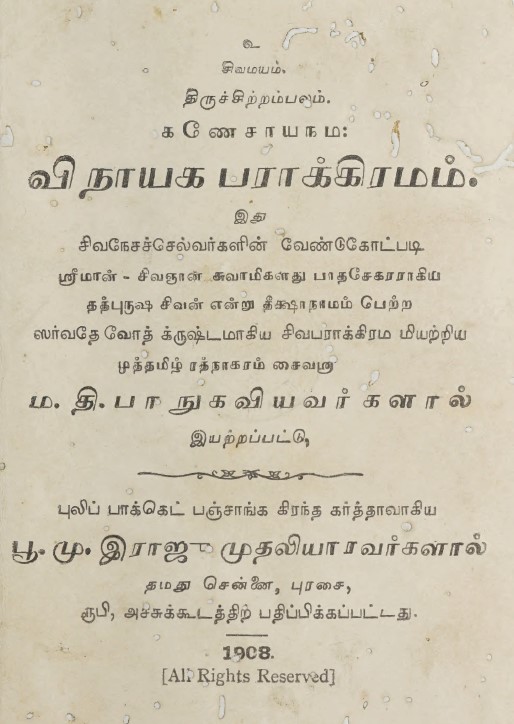 உ
சிவமயம்.
திருச்சிற்றம்பலம்.
கணேசாயநம:
விநாயக பராக்கிரமம்.
இது
சிவநேசச்செல்வர்களின் வேண்டுகோட்படி
ஸ்ரீமான் - சிவஞான சுவாமிகளது பாதசேகரராகிய
தத்புருஷ சிவன் என்று தீக்ஷாநாமம் பெற்ற
ஸர்வதே வோத் க்ருஷ்டமாகிய சிவபராக்கிரம மியற்றிய
முத்தமிழ் ரத்நாகரம் சைவஸ்ரீ
ம. தி. பாநுகவியவர்களால்
இயற்றப்பட்டு,
புலிப் பாக்கெட் பஞ்சாங்க கிரந்த கர்த்தாவாகிய
பூ. மு. இராஜு முதலியாரவர்களால்
தமது சென்னை, புரசை,
ரூபி, அச்சுக்கூடத்திற் பதிப்பிக்கப்பட்டது.
1908.
[All Rights Reserved]